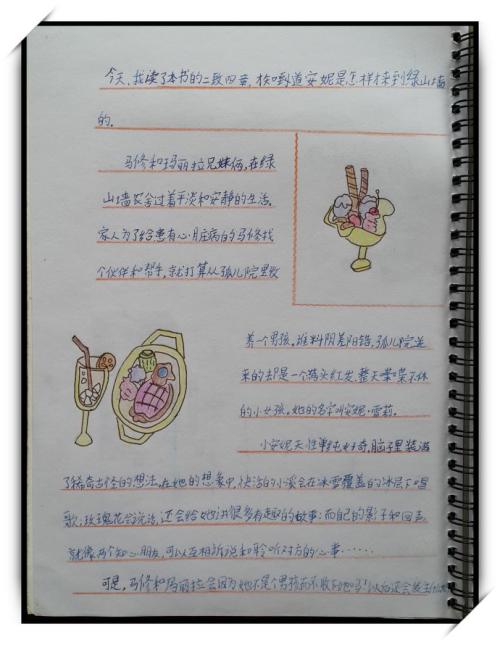 今天,我读了本书的二致四章,我知道安妮是怎样来到绿山墙
的。
马修和玛丽拉兄妹俩,在绿
山墙农舍过着平淡和安静的生活。
家人为了给患有心脏病的马修找
个伙伴和帮手,就打算从孤儿院里收
养一个男孩,谁料阴差阳错,孤儿院送
来的却是一个满头红发、整天喋喋不休
的小女孩。她的名字叫安妮·雪莉。
小安妮天性单纯好奇,脑子里装满
了稀奇古怪的想法,在她的想象中,快活的小溪会在冰雪覆盖的冰层下唱
歌;玫瑰花会说话,还会给她讲很多有趣的故事;而自己的影子和回声
就像两个知心朋友,可以互相诉说和聆听对方的心事……
可是,马修和玛丽拉会因为她不是个男孩而不收到她吗?以后还会发生什么